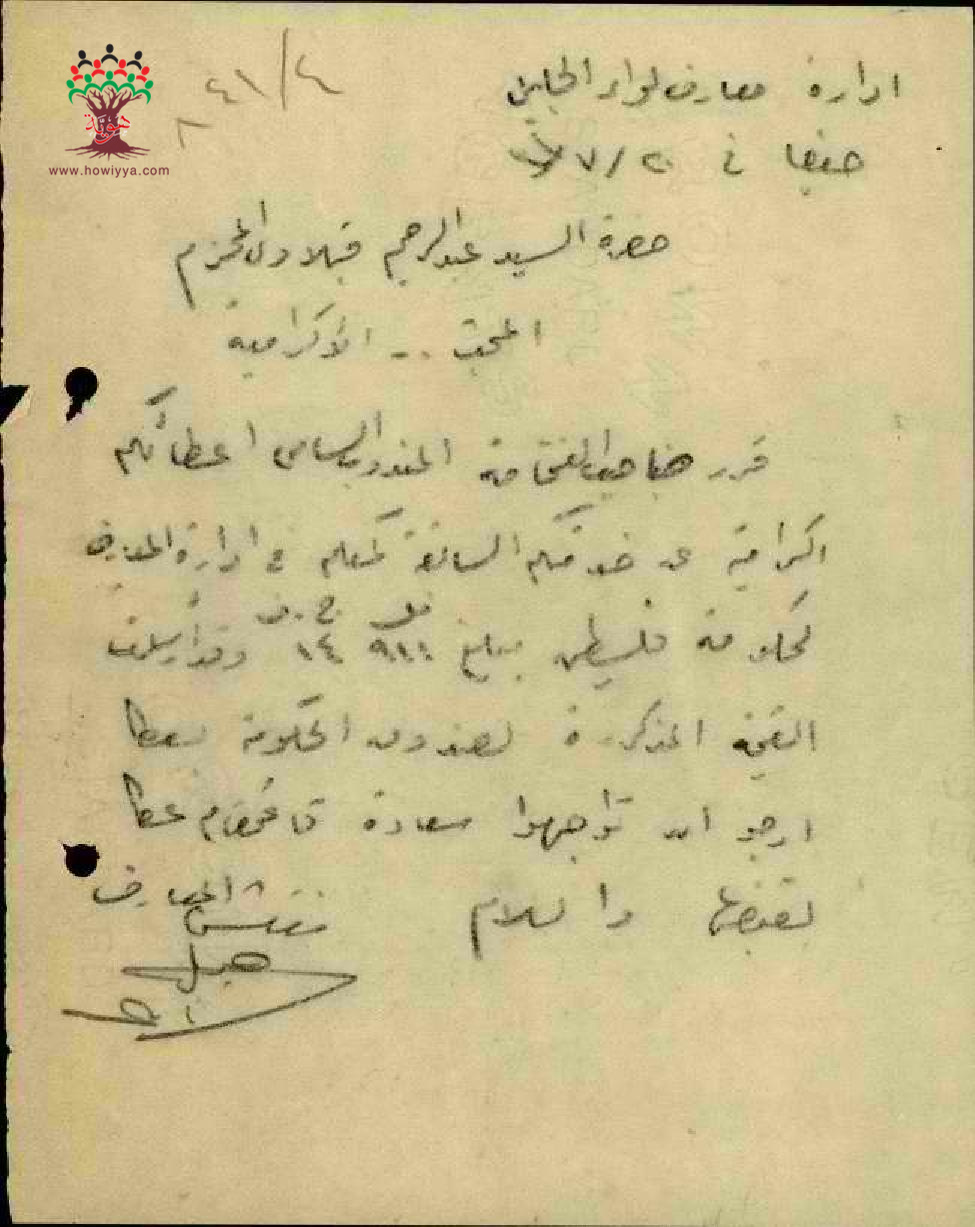 هوية
www.howiyya.com
٤١/٤
٨
ادارة معارف لواء الجليل
حيفا في ٢٠/٧/
حضرة السيد عبد الرحيم المحترم
المبحث .. الاكرامية
قرر صاحب الفخامة المندوب السامي اعطائكم
اكرامية عن خدمتكم السابقة كمعلم في ادارة المعارف
لحكومة فلسطين بمبلغ ٩١١ مل ١٤ ج.ف وقد ارسلت
القيمة المذكورة لصندوق الحكومة بعكا
ارجو ان تواجهوا سعادة قائمقام عكا
لقبضها والسلام
مفتش المعارف